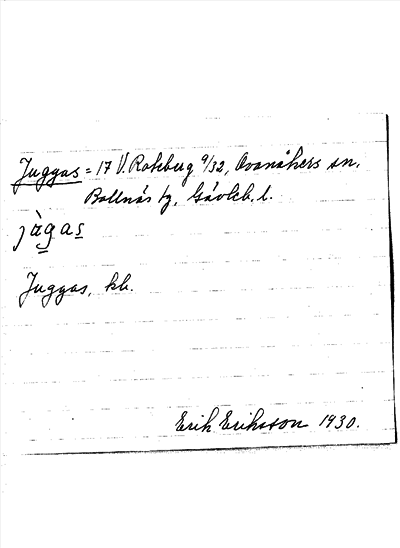 Juggas = 17 V. Roteberg 9/32, Ovanåkers sn.
Bollnäs tg, Gävleb. l.
jàgas
Juggas, kb.
Erik Eriksson 1930.